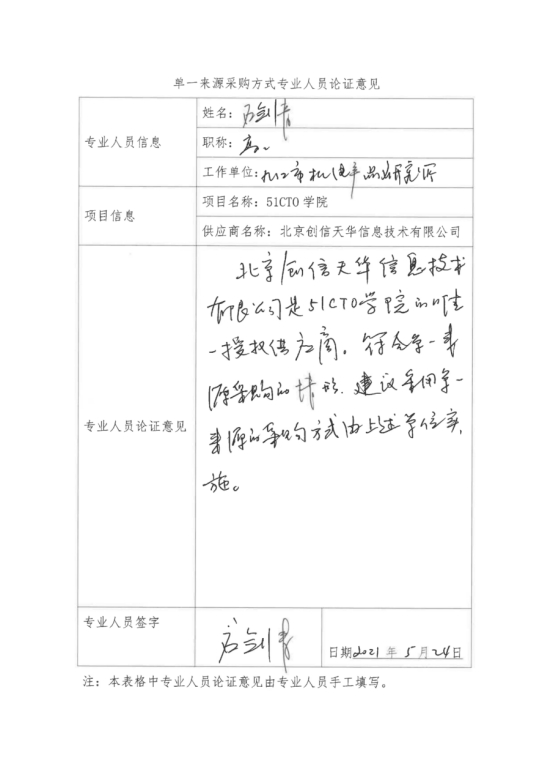 单一来源采购方式专业人员论证意见
专业人员信息
姓名：
职称：高工
工作单位：九江市机电产品研究所
项目信息
项目名称：51CTO 学院
供应商名称：北京创信天华信息技术有限公司
专业人员论证意见
北京创信天华信息技术
有限公司是51CTO学院的唯
一授权供应商，符合单一来
源采购的情形，建议采用单一
来源的采购方式由上述单位实
施。
专业人员签字
日期2021 年 5 月 24 日
注：本表格中专业人员论证意见由专业人员手工填写。